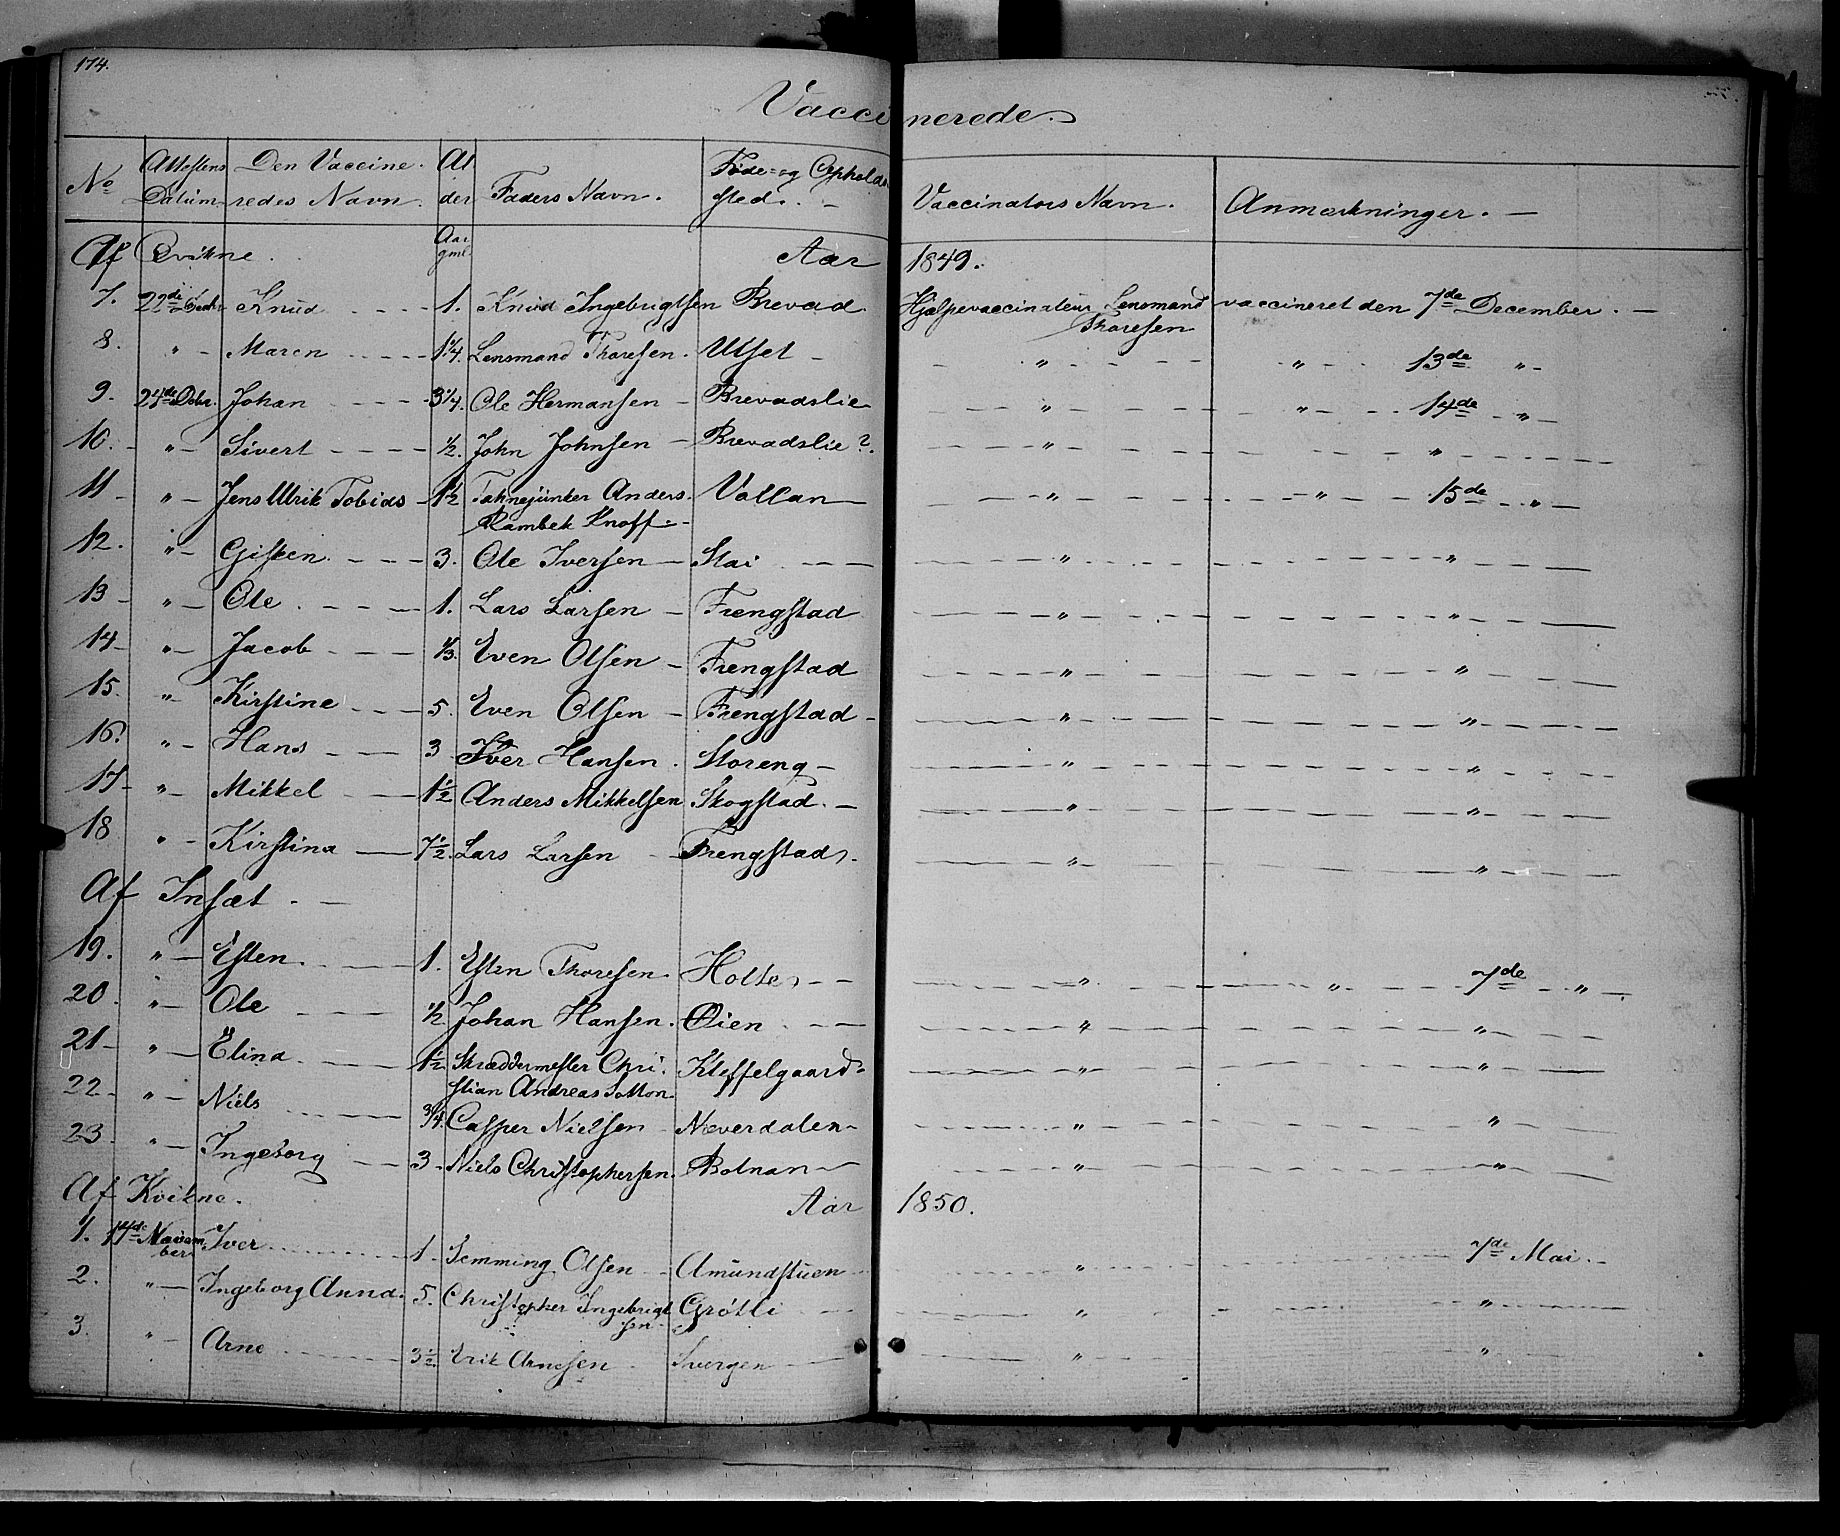 174.
Vaccinerede.
No Attestens Datum Den Vaccineredes Navn. Alder Faders Navn. Føde- og Opholdssted. Vaccinators Navn. Anmærkninger.
Af Qvikne. Aar gml. Aar 1849.
7. 22de Knud 1. Knud Ingebrigtsen Brevad Hjælpevaccinateur Lensmand Thoresen vaccineret den 7de December.
8. " Maren 1 1/4. Lensmand Thoresen. Utset " " 13de "
9. 24de Decbr. Johan 3 1/4. Ole Hermansen Brevadslie " " 14de "
10. " Sivert 1/2. John Johnsen Brevadslie?. " "
11 " Jens Ulrik Tobias 1 1/2 Fahnejunker Anders Rambek Knoff. Vollan " " 15de "
12. " Gisken 3. Ole Iversen Stai " "
13 " Ole 1. Lars Larsen Frengstad " "
14 " Jacob 1/3. Even Olsen Frengstad " "
15. " Kirstine 5. Even Olsen Frengstad " "
16. " Hans 3 Iver Hansen. Storeng " "
17 " Mikkel 1 1/2 Anders Mikkelsen Skogstad. " "
18 " Kirstina 7 1/2. Lars Larsen Frengstad. " "
Af Insæt.
19. " Esten. 1. Esten Thoresen. Holte " " 7de "
20 " Ole 1/2 Johan Hansen. Øien " "
21 " Elina 1 1/2 Skræddermester Christian Andreas Kleffelgaard " "
22 " Niels 3/4. Casper Nielsen Næverdalen " "
23 " Ingeborg 3 Niels Christophersen. Botnan " "
Af Kvikne. Aar 1850.
1. 14de November Iver 1 Semming Olsen Amundstuen " 7de Mai.
2. " Ingeborg Anna. 5. Christopher Ingebrigtsen Grøtli " "
3. " Arne 3 1/2 Erik Arnesen Svergen " "